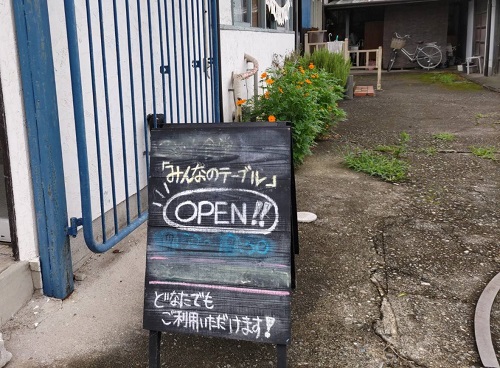 「みんなのテーブル」
OPEN!!
どなたでも
ご利用いただけます!